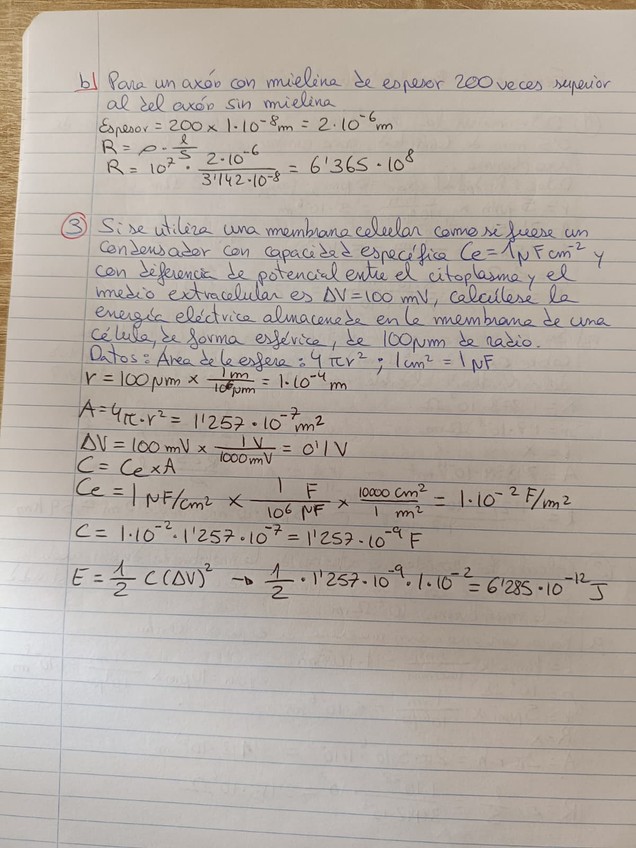 b) Para un axón con mielina de espesor 200 veces superior
al del axón sin mielina
Espesor = 200 x 1·10⁻⁸m = 2·10⁻⁶m
R = ρ · l/S
R = 10⁷ · 2·10⁻⁶/3'142·10⁻⁸ = 6'365·10⁸
③ Si se utiliza una membrana celular como si fuese un
condensador con capacidad específica Ce = 1µF cm⁻² y
con diferencia de potencial entre el citoplasma y el
medio extracelular es ΔV = 100 mV, calcúlese la
energía eléctrica almacenada en la membrana de una
célula, de forma esférica, de 100µm de radio.
Datos: Área de la esfera: 4πr² ; 1cm² = 1µF
r = 100µm x 1m/10⁶µm = 1·10⁻⁴m
A = 4π·r² = 1'257·10⁻⁷m²
ΔV = 100mV x 1V/1000mV = 0'1V
C = Ce x A
Ce = 1µF/cm² x 1 F/10⁶ µF x 10000 cm²/1 m² = 1·10⁻² F/m²
C = 1·10⁻²·1'257·10⁻⁷ = 1'257·10⁻⁹ F
E = 1/2 C(ΔV)² → 1/2 · 1'257·10⁻⁹·1·10⁻² = 6'285·10⁻¹² J